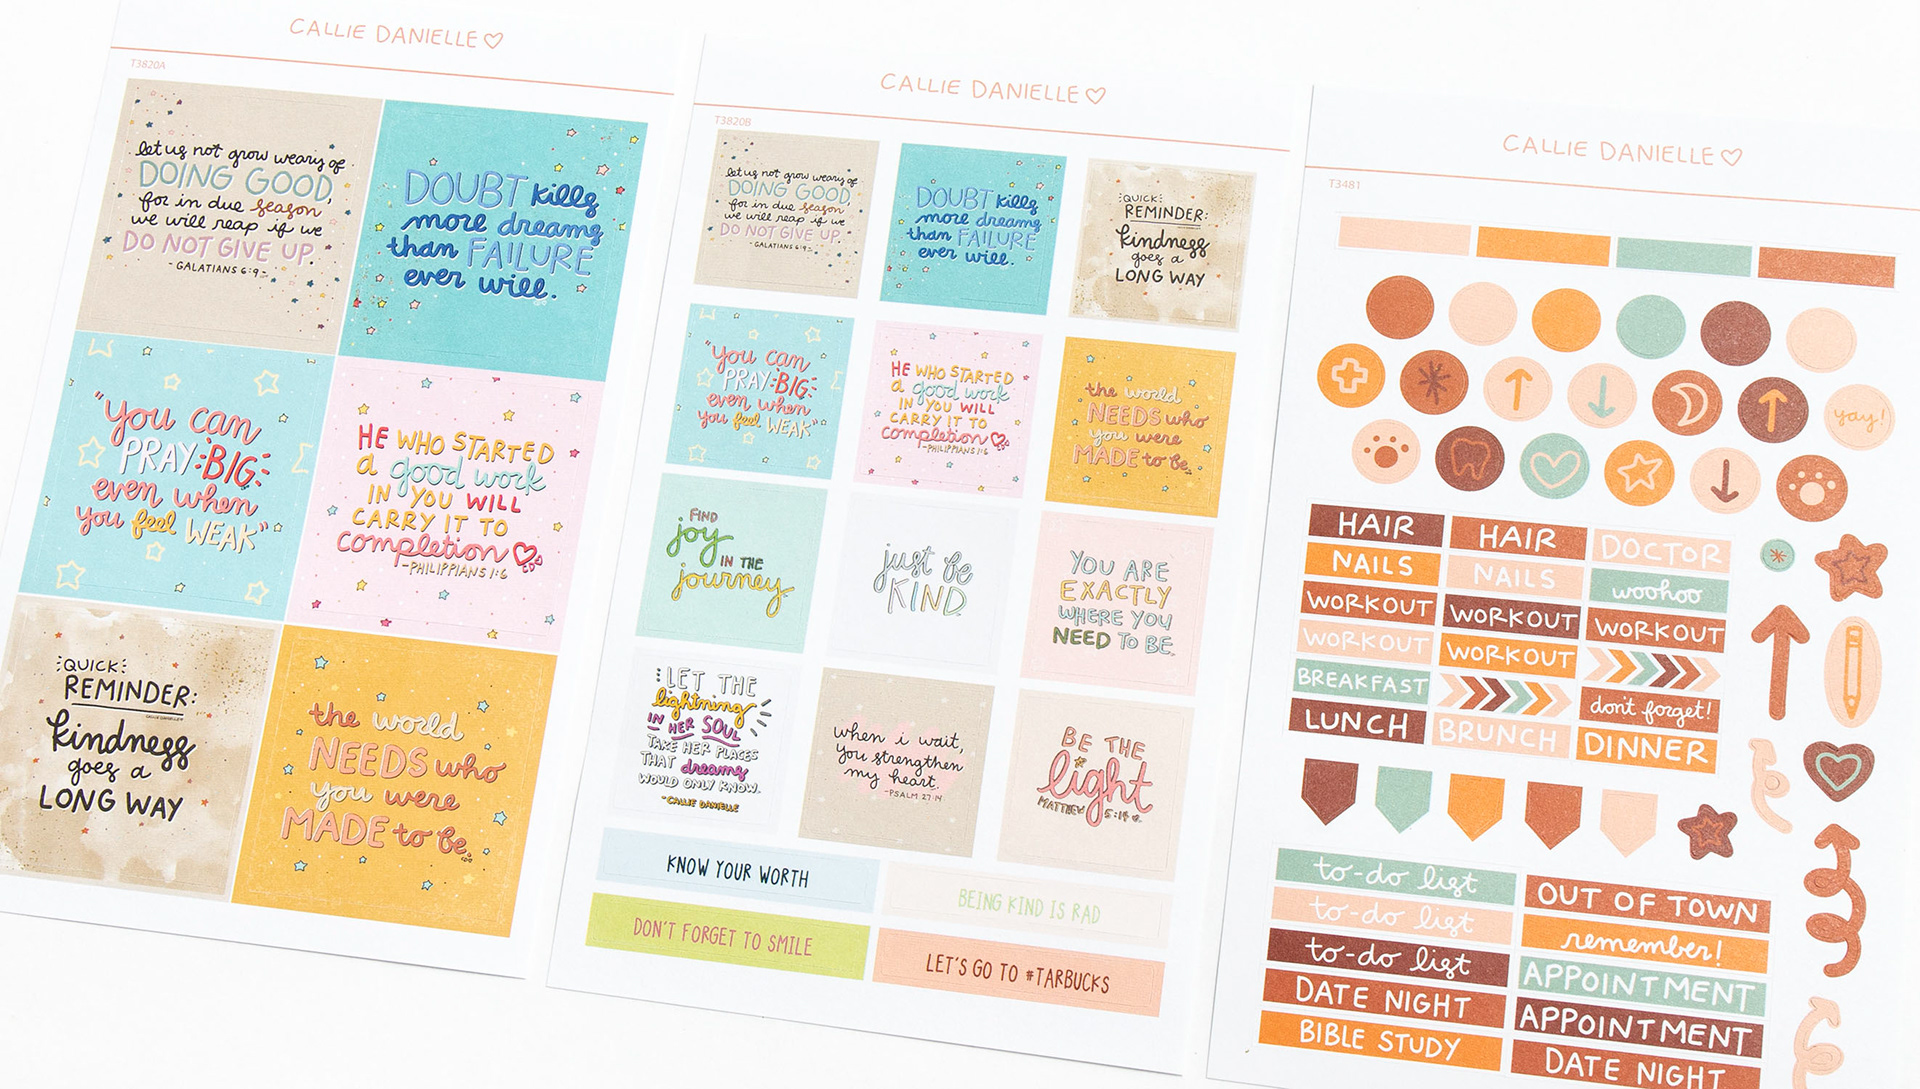 CALLIE DANIELLE
T3820A
let us not grow weary of
DOING GOOD,
for in due season
we will reap if we
DO NOT GIVE UP.
- GALATIANS 6:9 -
DOUBT kills
more dreams
than FAILURE
ever will.
"you can
PRAY BIG
even when
you feel WEAK"
HE WHO STARTED
a good work
IN YOU WILL
CARRY IT TO
completion
-PHILIPPIANS 1:6
QUICK
REMINDER:
kindness
goes a
LONG WAY
the world
NEEDS who
you were
MADE to be.
CALLIE DANIELLE
T3820B
let us not grow weary of
DOING GOOD,
for in due season
we will reap if we
DO NOT GIVE UP.
- GALATIANS 6:9 -
DOUBT kills
more dreams
than FAILURE
ever will.
QUICK
REMINDER:
kindness
goes a
LONG WAY
"you can
PRAY BIG
even when
you feel WEAK"
HE WHO STARTED
a good work
IN YOU WILL
CARRY IT TO
completion
-PHILIPPIANS 1:6
the world
NEEDS who
you were
MADE to be.
FIND
joy
IN THE
journey
just be
KIND
YOU ARE
EXACTLY
WHERE YOU
NEED TO BE.
LET THE
lightning
IN HER SOUL
TAKE HER PLACES
THAT dreams
WOULD ONLY KNOW.
-CALLIE DANIELLE
when i wait,
you strengthen
my heart.
-PSALM 27:14
BE THE
light
MATTHEW 5:14
KNOW YOUR WORTH
BEING KIND IS RAD
DON'T FORGET TO SMILE
LET'S GO TO #TARBUCKS
CALLIE DANIELLE
T3481
yay!
HAIR
HAIR
DOCTOR
NAILS
NAILS
woohoo
WORKOUT
WORKOUT
WORKOUT
WORKOUT
WORKOUT
BREAKFAST
don't forget!
LUNCH
BRUNCH
DINNER
to-do list
OUT OF TOWN
to-do list
remember!
to-do list
APPOINTMENT
DATE NIGHT
APPOINTMENT
BIBLE STUDY
DATE NIGHT